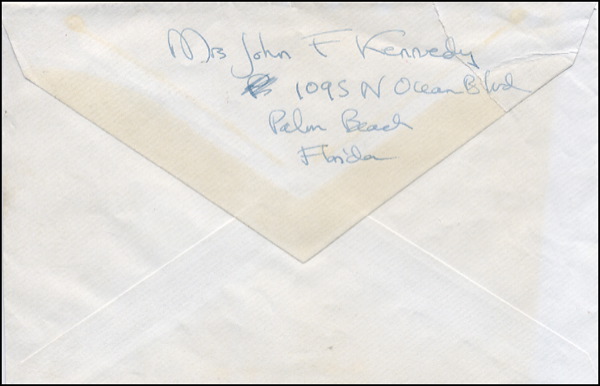 Mrs John F Kennedy
1095 N Ocean Blvd
Palm Beach
Florida